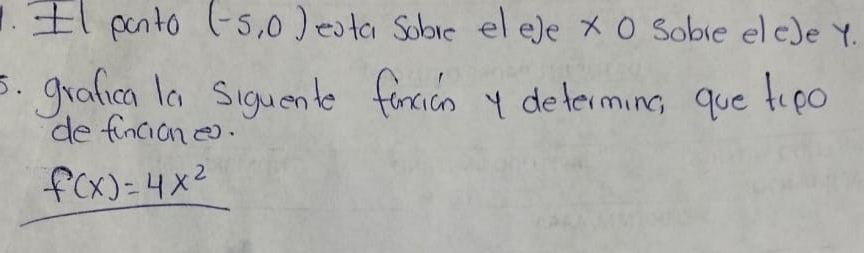 1. El punto (-5,0) esta sobre el eje x o sobre el eje y.
5. grafica la siguente función y determina que tipo
de función es.
f(x)=4x²